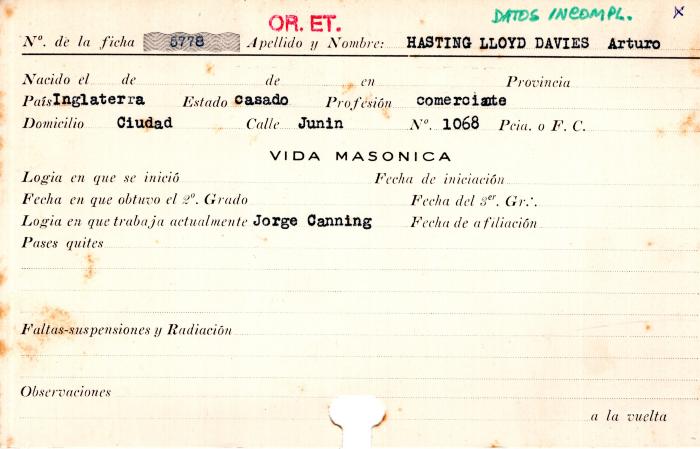 OR. ET. DATOS INCOMPL. x
Nº. de la ficha 5778 Apellido y Nombre: HASTING LLOYD DAVIES Arturo
Nacido el de de en Provincia
País Inglaterra Estado casado Profesión comerciante
Domicilio Ciudad Calle Junin Nº. 1068 Pcia. o F. C.
VIDA MASONICA
Logia en que se inició Fecha de iniciación
Fecha en que obtuvo el 2º. Grado Fecha del 3er. Gr∴.
Logia en que trabaja actualmente Jorge Canning Fecha de afiliación
Pases quites
Faltas-suspensiones y Radiación
Observaciones
a la vuelta